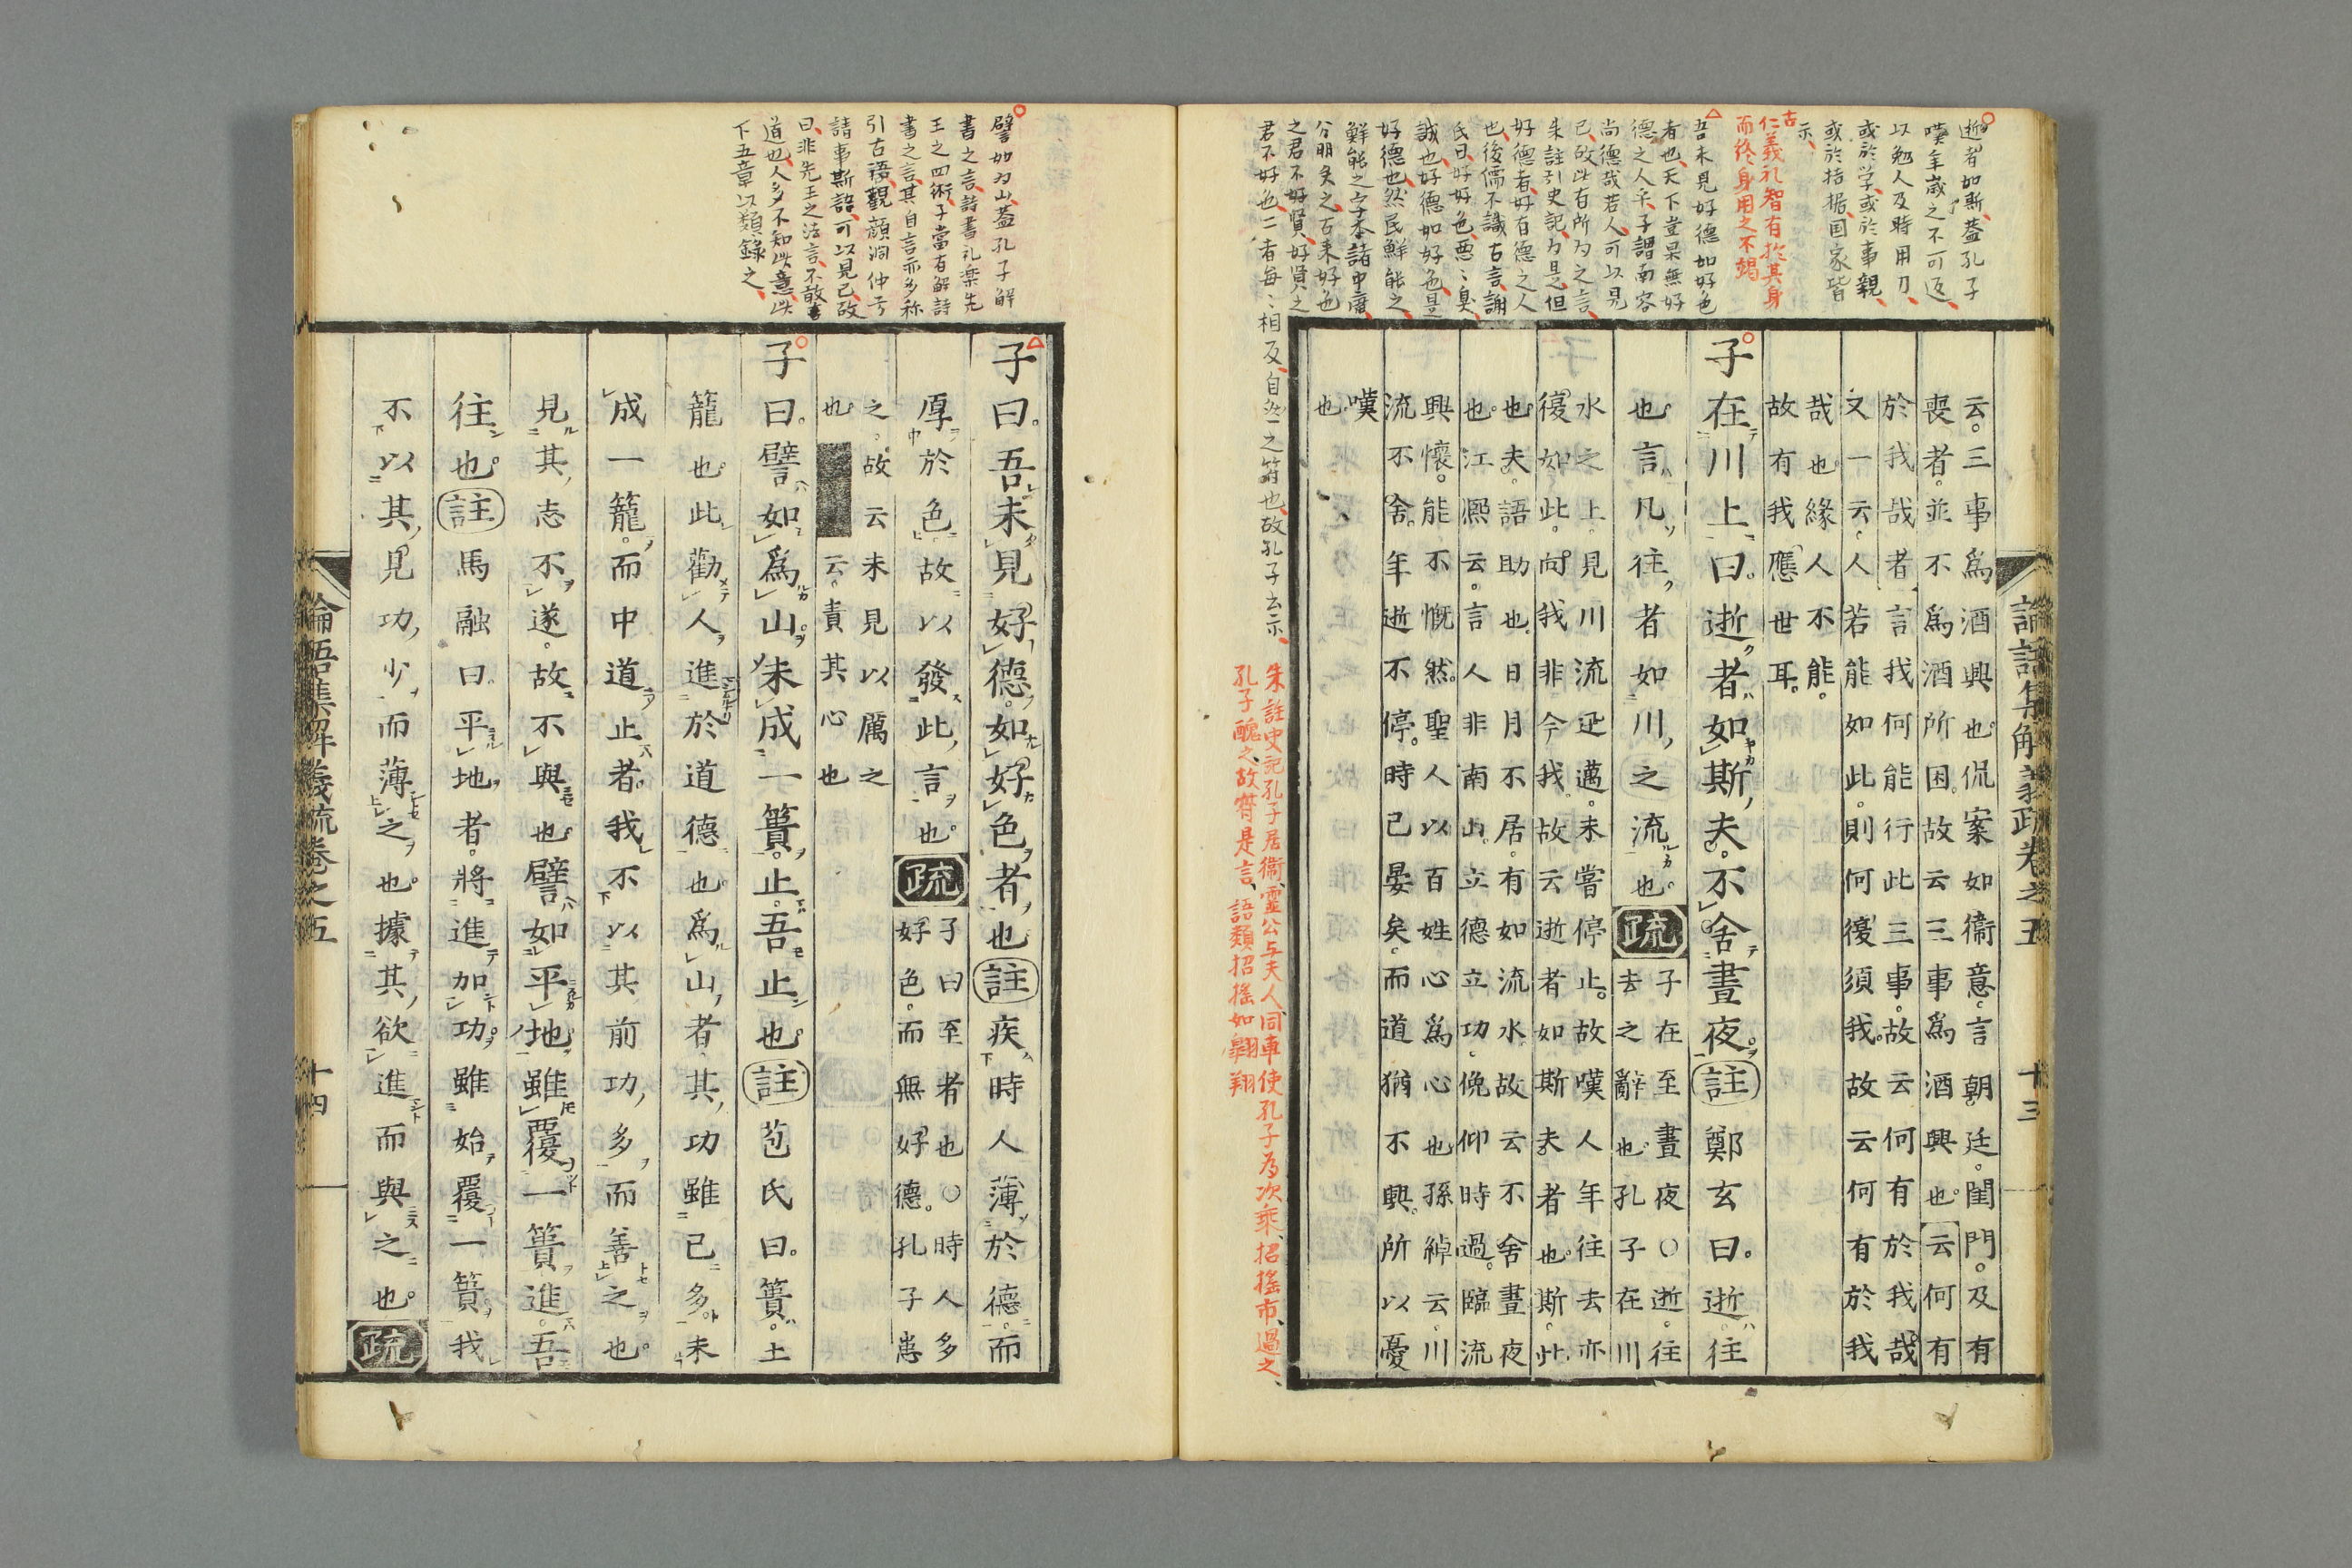 逝者如斯蓋孔子
嘆年歲之不可返
以勉人及時用力
或於学或於事親
或於拮据国家皆
示
古
仁義礼智有於其身
而終身用之不竭
吾未見好德如好色
者也天下豈果無好
德之人乎子謂南容
尚德哉若人可以見
已故此有所为之言
朱註引史記为是但
好德者好有德之人
也後儒不識古言謝
氏曰好好色惡〻臭
誠也好德如好色是
好德也然民鮮能之
鮮能之字本諸中庸
分明矣之古来好色
之君不好賢好賢之
君不好色二者每〻相反自然之符也故孔子云示
朱註史記孔子居衛靈公与夫人同車使孔子為次乘招搖市過之
孔子醜之故有是言語類招搖如翺翔
論語集解義疏卷之五 十三
云三事爲酒興也侃案如衞意言朝廷閨門及有
喪者並不爲酒所困故云三事爲酒興也云何有
於我哉者言我何能行此三事故云何有於我哉
又一云人若能如此則何復須我故云何有於我
哉也緣人不能
故有我應世耳
子在川上曰逝者如斯夫不舍晝夜註鄭玄曰逝往
也言凡往者如川之流也疏
子在至晝夜○逝往
去之辭也孔子在川
水之上見川流迅邁未嘗停止故嘆人年往去亦
復如此向我非今我故云逝者如斯夫者也斯此
也夫語助也日月不居有如流水故云不舍晝夜
也江熙云言人非南山立德立功俛仰時過臨流
興懷能不慨然聖人以百姓心爲心也孫綽云川
流不舍年逝不停時已晏矣而道猶不興所以憂
嘆
也
譬如为山蓋孔子解
書之言詩書礼楽先
王之四術子當有解詩
書之言其自言亦多称
引古語觀顔淵仲弓
請事斯語可以見已故
曰非先王之法言不敢
道也人多不知此意此
下五章以類錄之
子曰吾未見好德如好色者也註疾時人薄於德而
厚於色故以發此言也疏
子曰至者也○時人多
好色而無好德孔子患
之故云未見以厲之
也云責其心也
子曰譬如爲山未成一簣止吾止也註苞氏曰簣土
籠也此勸人進於道德也爲山者其功雖已多未
成一籠而中道止者我不以其前功多而善之也
見其志不遂故不與也譬如平地雖覆一簣進吾
往也註馬融曰平地者將進加功雖始覆一簣我
不以其見功少而薄之也據其欲進而與之也疏
論語集解義疏卷之五 十四